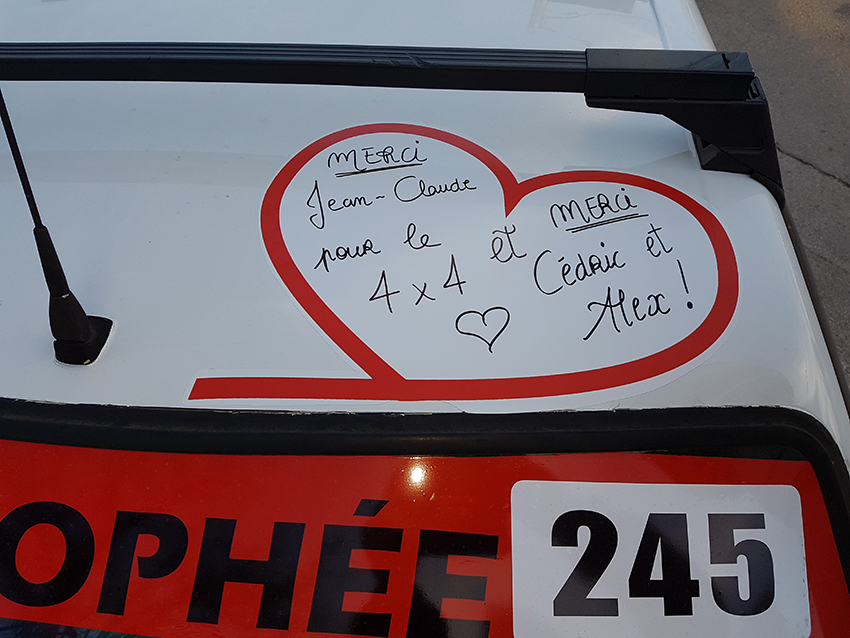 MERCI
Jean-Claude
pour le
4x4
et MERCI
Cédric et
Alex !
OPHÉE 245